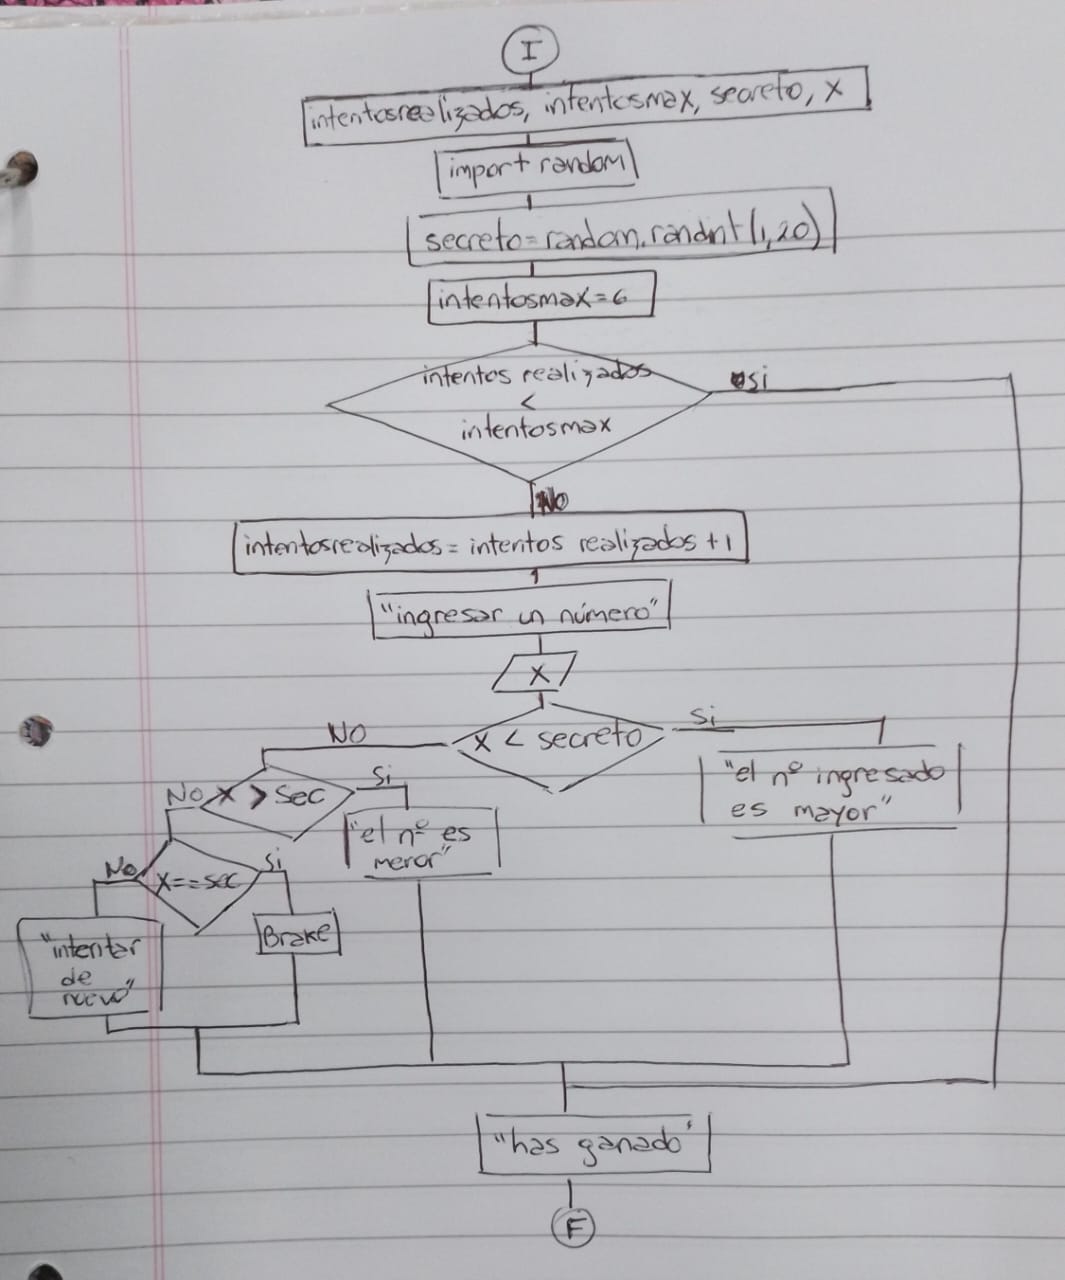 I
intentosrealizados, intentosmax, secreto, x
import random
secreto=random.randint(1,20)
intentosmax=6
intentos realizados
<
intentosmax
si
No
intentosrealizados= intentos realizados +1
"ingresar un número"
x
x < secreto
NO
Si
"el nº ingresado
es mayor"
x > sec
No
Si
"el nº es
menor"
x==sec
No
Si
Brake
"intentar
de
nuevo"
"has ganado"
F